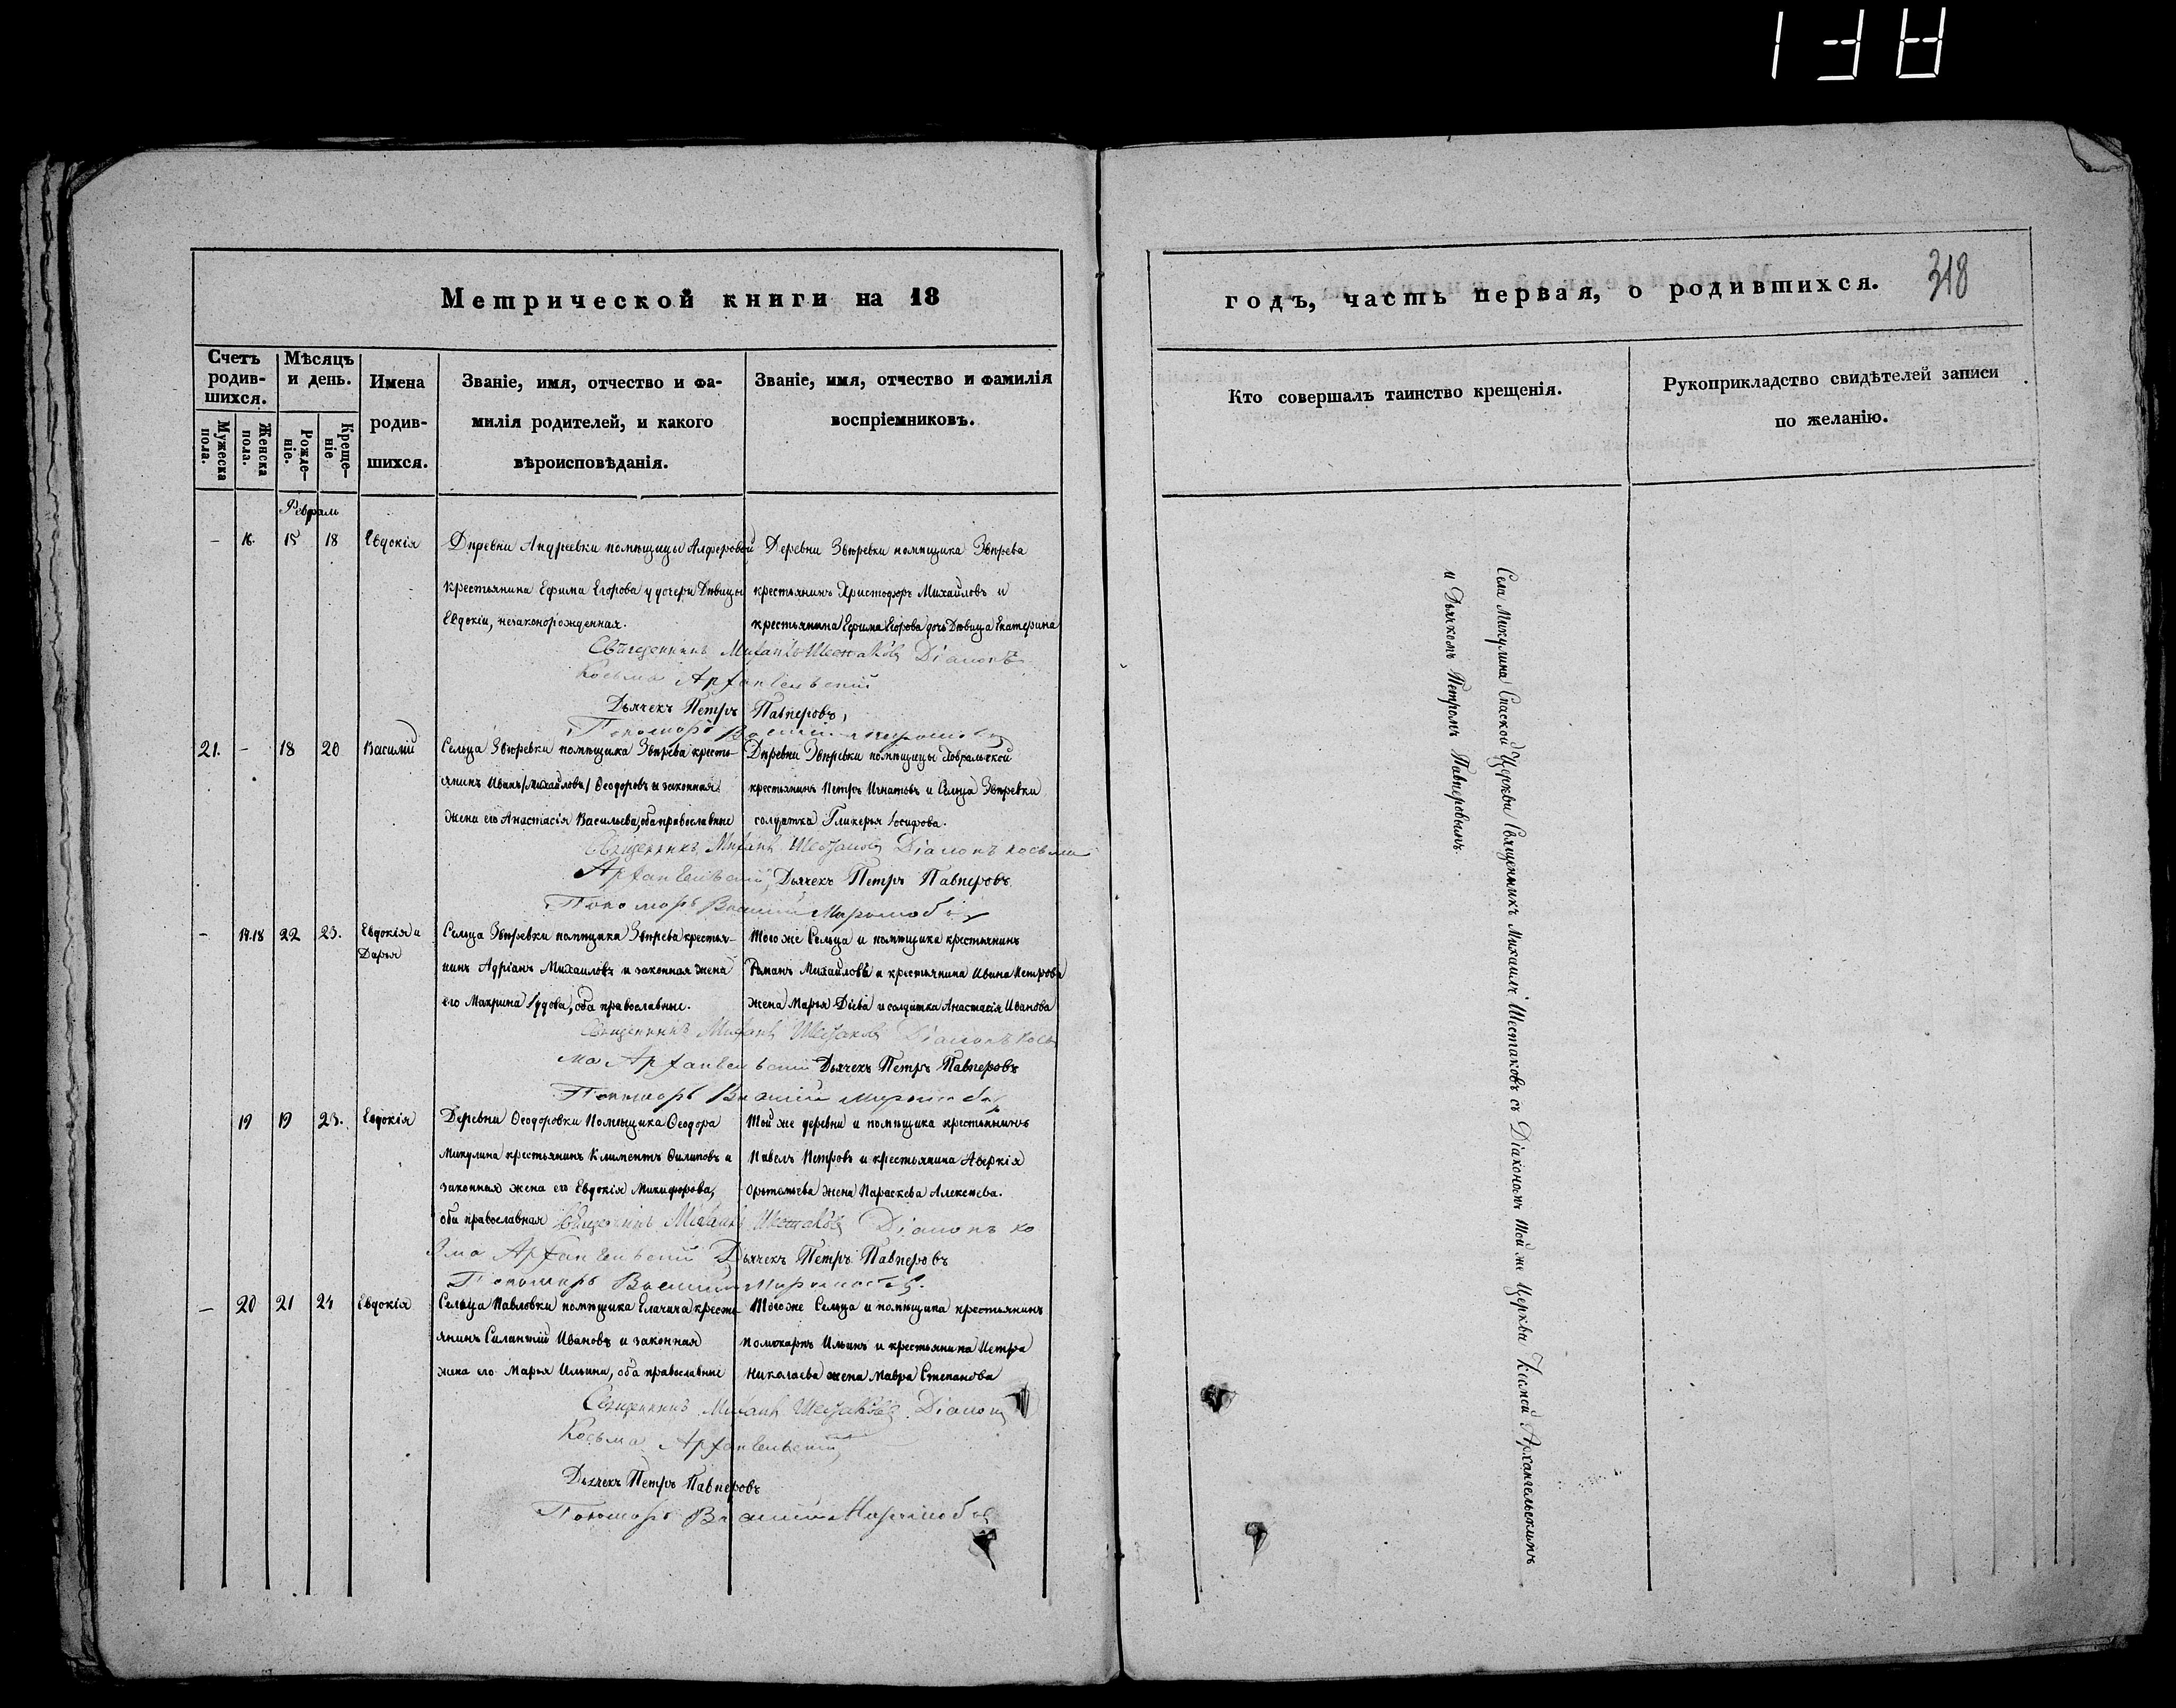 138
Метрической книги на 18
Счетъ родившихся.
Мужеска пола.
Женска пола.
Мѣсяцъ и день.
Рожденіе.
Крещеніе
Имена родившихся.
Званіе, имя, отчество и фамилія родителей, и какого вѣроисповѣданія.
Званіе, имя, отчество и фамилія воспріемниковъ.
Февраль
— 16. 15 18 Евдокія
Деревни Андреевки помѣщицы Алферовой
крестьянина Ефима Егорова у дочери Дѣвицы
Евдокіи, незаконорожденная.
Деревни Звѣревки помѣщика Звѣрева
крестьянинъ Христофоръ Михайловъ и
крестьянина Ефима Егорова дочь Дѣвица Екатерина
Священникъ Михаилъ Шестаковъ Діаконъ
Косьма Архангельскій
Дьячекъ Петръ Павперовъ,
Пономарь Василій
21. — 18 20 Василій
Сельца Звѣревки помѣщика Звѣрева кресть-
янинъ Иванъ /Михайловъ/ Ѳеодоровъ и законная
жена его Анастасія Васильева, оба православные
Деревни Звѣревки помѣщицы
крестьянинъ Петръ Игнатовъ и Сельца Звѣревки
солдатка Гликерья Іосифова.
Священникъ Михаилъ Шестаковъ Діаконъ Косьма
Архангельскій, Дьячекъ Петръ Павперовъ
Пономарь Василій
— 17.18 22 23. Евдокія и Дарья
Сельца Звѣревки помѣщика Звѣрева крестья-
нинъ Адріанъ Михаиловъ и законная жена
его Макрина Іудова, оба православные.
Того же Сельца и помѣщика крестьянинъ
Романъ Михайловъ и крестьянина Ивана Петрова
жена Марья и солдатка Анастасія Иванова
Священникъ Михаилъ Шестаковъ Діаконъ Кось
ма Архангельскій Дьячекъ Петръ Павперовъ
Пономарь Василій
19 19 23. Евдокія
Деревни Ѳеодоровки Помѣщика Ѳеодора
Микулина крестьянинъ Климентъ Филиповъ и
законная жена его Евдокія Никифорова,
оба православная
Той же деревни и помѣщика крестьянинъ
Павелъ Петровъ и крестьянина Аверкія
жена Параскева Алексѣева.
Священникъ Михаилъ Шестаковъ Діаконъ Ко
зма Архангельскій Дьячекъ Петръ Павперовъ
Пономарь Василій
— 20 21 24 Евдокія
Сельца Павловки помѣщика Елачича кресть-
янинъ Силантій Ивановъ и законная
жена его Марья Ильина, оба православные
Того же Сельца и помѣщика крестьянинъ
Поликарпъ Ильинъ и крестьянина Петра
Николаева жена Мавра Степанова
Священникъ Михаилъ Шестаковъ Діаконъ
Косьма Архангельскій
Дьячекъ Петръ Павперовъ
Пономарь Василій
годъ, часть первая, о родившихся.
318
Кто совершалъ таинство крещенія.
Рукоприкладство свидѣтелей записи по желанію.
Села Микулина Спаской Церкви Священникъ Михаилъ Шестаковъ съ Діакономъ той же Церкви Космой Архангельскимъ
и Дьячкомъ Петромъ Павперовымъ.